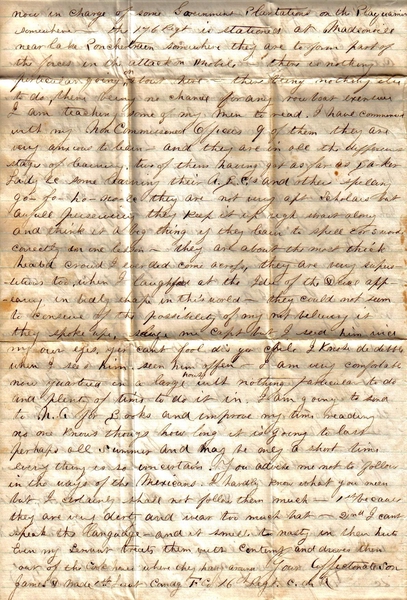 now in charge of some Government Plantations on the
somewhere the 176 Regt is stationed at Madisonville
near Lake Ponchetrain somewhere they are to form part of
the forces in the attack on Mobile there is nothing
particular going on about here there being nothing else
to do, there being no chance for any row boat exercise
I am teaching some of my men to read. I have commenced
with my Non Commissioned Officers 9 of them they are
very anxious to learn and they are in all the different
stages of learning two of them having got as far as Baker
Lady & some learning their A, B, C's and others spelling
go- for ho- they are not very apt scholars but
awfull persevering they keep it up right along
and think it a big thing if they learn to spell words
correctly in one lesson they are about the most thick
headed crowd I ever did come across, they are very supers-
titious too, when I laughed at the Idea of the Devil app-
earing in bodily shape in this world they could not seem
to conceive of the possibility of my not believing it
they spoke up, me capt but I seed him wid
my own eyes, you cant fool dis yer chile I knose de debble
when I sees him, seen him often I am very comfortable
now quartered in a large house with nothing particular to do
and plenty of time to do it in. I am going to send
to N.O. for Books and improve my time reading
no one knows though how long it is going to last
perhaps all summer and may be only a short time
every thing is so uncertain. You advise me not to follow
in the ways of the Mexicans I hardly know what you mean
but I certainly shall not follow them much 1st because
they are very dirty and wear too much hat 2nd I cant
speak the language and it smells to nasty in their huts
even my servant treats them with contempt and drives them
out of the Cook house where they hang around Your Affectionate Son
James H 1st Lieut Comdg Co F 116 Regt. U.S.C.